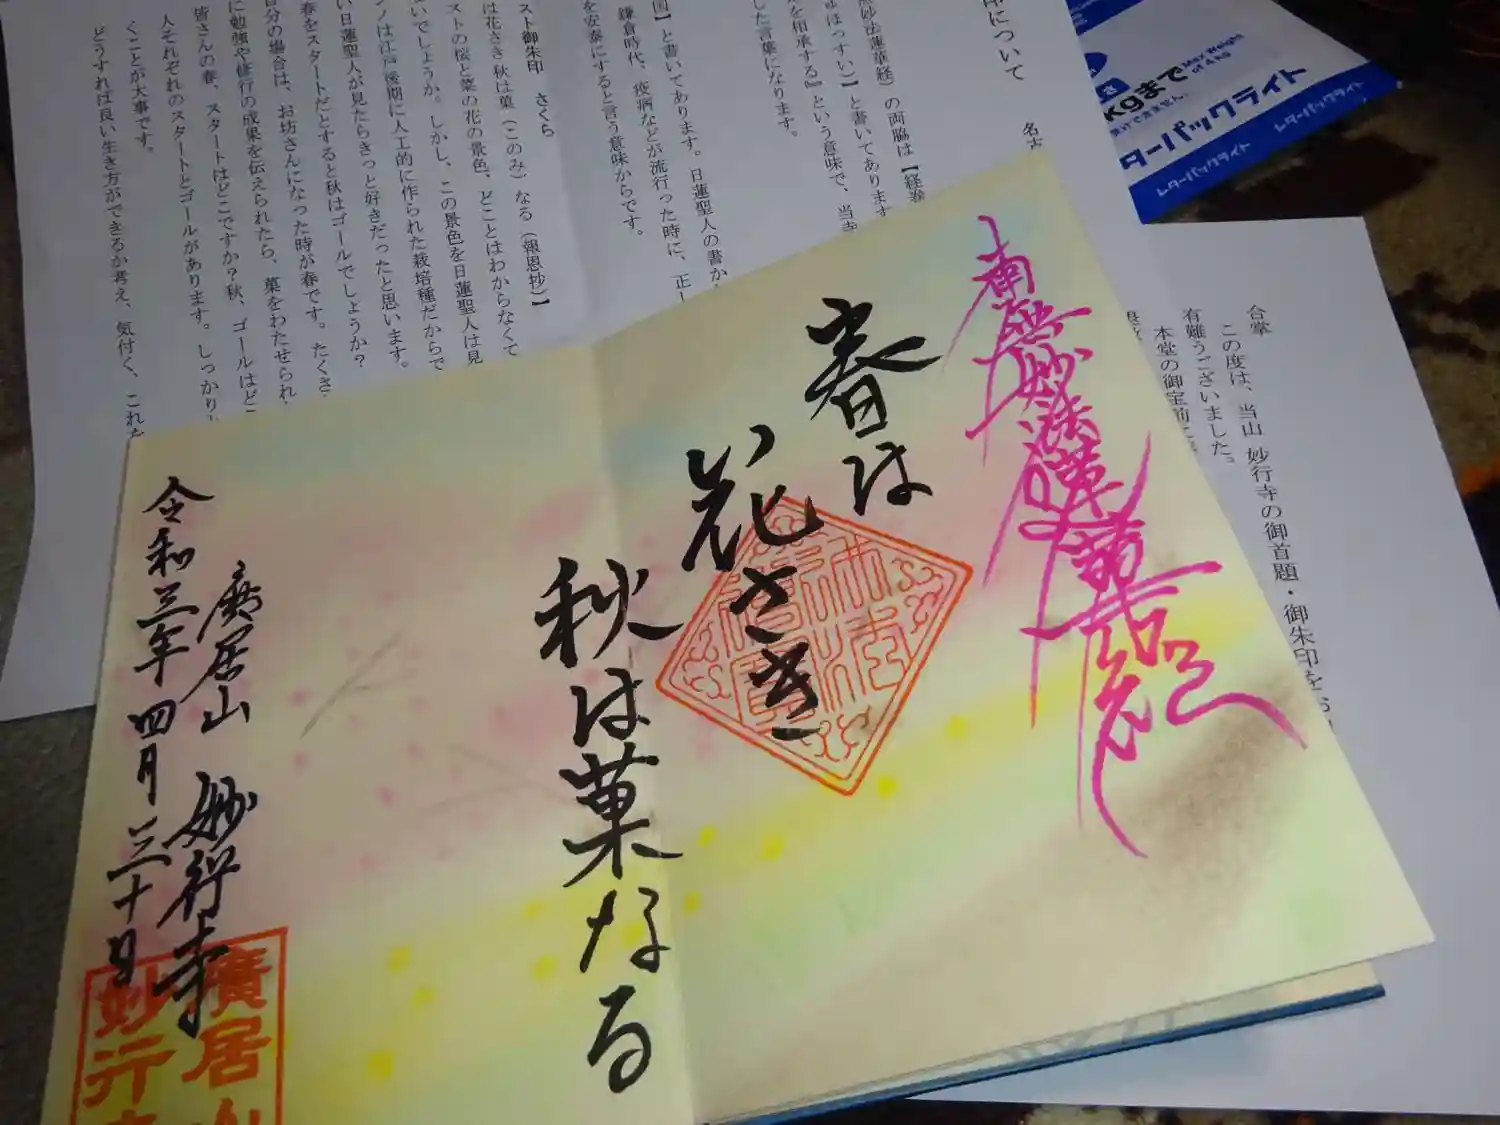 南無妙法蓮華経
春は
花さき
秋は菓なる
廣居山 妙行寺
令和三年四月三十日
廣居山
妙行
印について
名古
無妙法蓮華経）の両脇は【経巻
ゅほっすい）】と書いてあります
を相承する』という意味で、当寺
した言葉になります。
国】と書いてあります。日蓮聖人の書か
鎌倉時代、疫病などが流行った時に、正し
を安泰にすると言う意味からです。
スト御朱印 さくら
は花さき 秋は菓（このみ）なる（報恩抄）】
ストの桜と菜の花の景色、どことはわからなくて
いでしょうか。しかし、この景色を日蓮聖人は見
ノは江戸後期に人工的に作られた栽培種だからで
い日蓮聖人が見たらきっと好きだったと思います。
春をスタートだとすると秋はゴールでしょうか？
自分の場合は、お坊さんになった時が春です。たくさ
に勉強や修行の成果を伝えられたら、菓をわたせられ
皆さんの春、スタートはどこですか？秋、ゴールはどこ
人それぞれのスタートとゴールがあります。しっかり
くことが大事です。
どうすれば良い生き方ができるか考え、気付く、これ
合掌
この度は、当山 妙行寺の御首題・御朱印を
有難うございました。
本堂の御宝前に
Max Weight
of 4kg
kgまで
ターパックライト
レターパックライト
レターパックライト